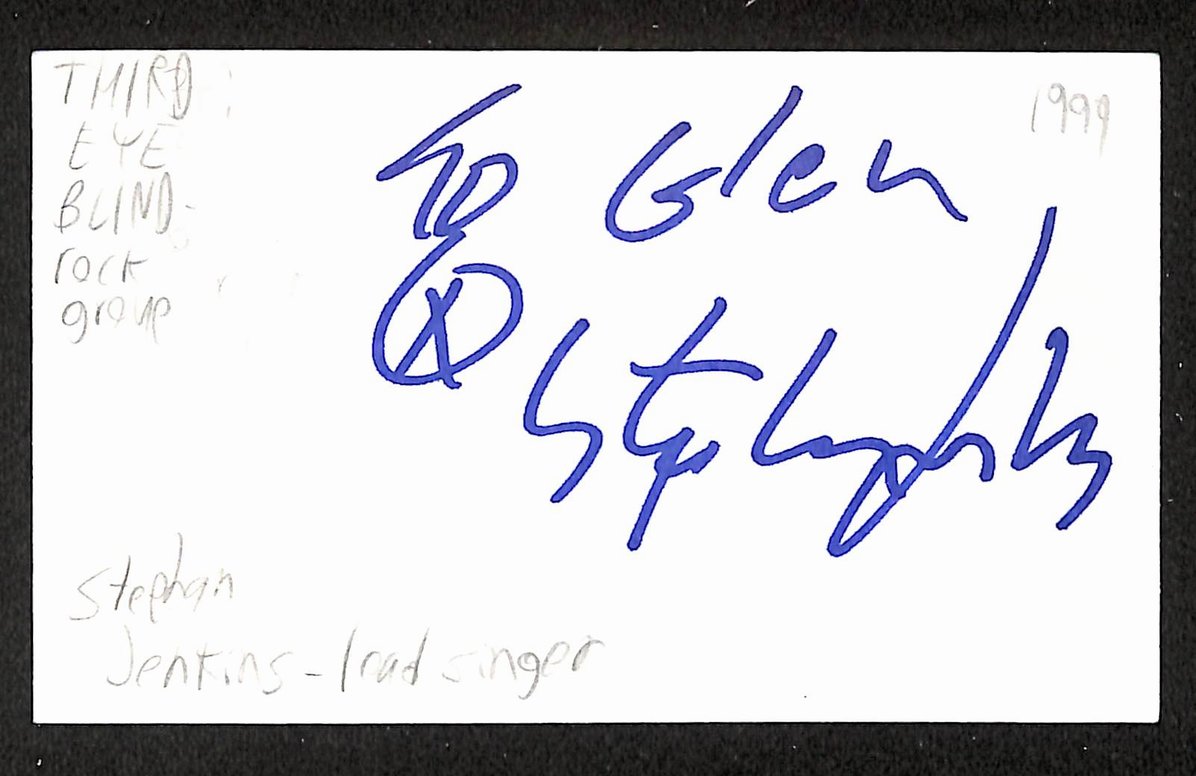 THIRD
EYE
BLIND-
rock
group
1999
To Glen
Stephan Jenkins
Stephan
Jenkins - lead singer